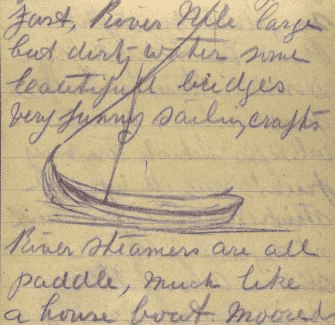 Fast, River Nile large
but dirty water some
beautifull bridges
very funny sailing crafts
River steamers are all
paddle, much like
a house boat moored